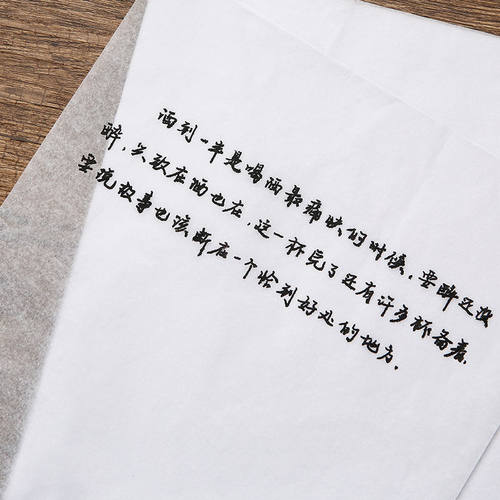 酒到一半是喝酒最痛快的时候，要醉还没
醉，欠致在酒也在，这一杯完了还有许多杯备着，
要说故事也该断在一个恰到好处的地方．